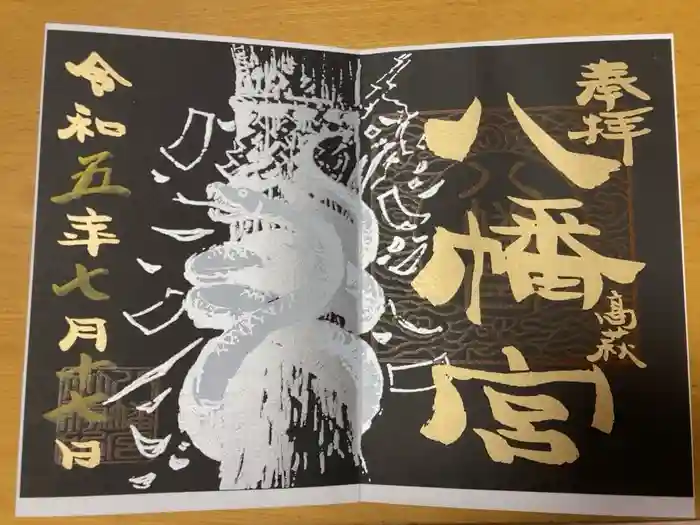 奉拝
八幡宮
高萩
令和五年七月十六日